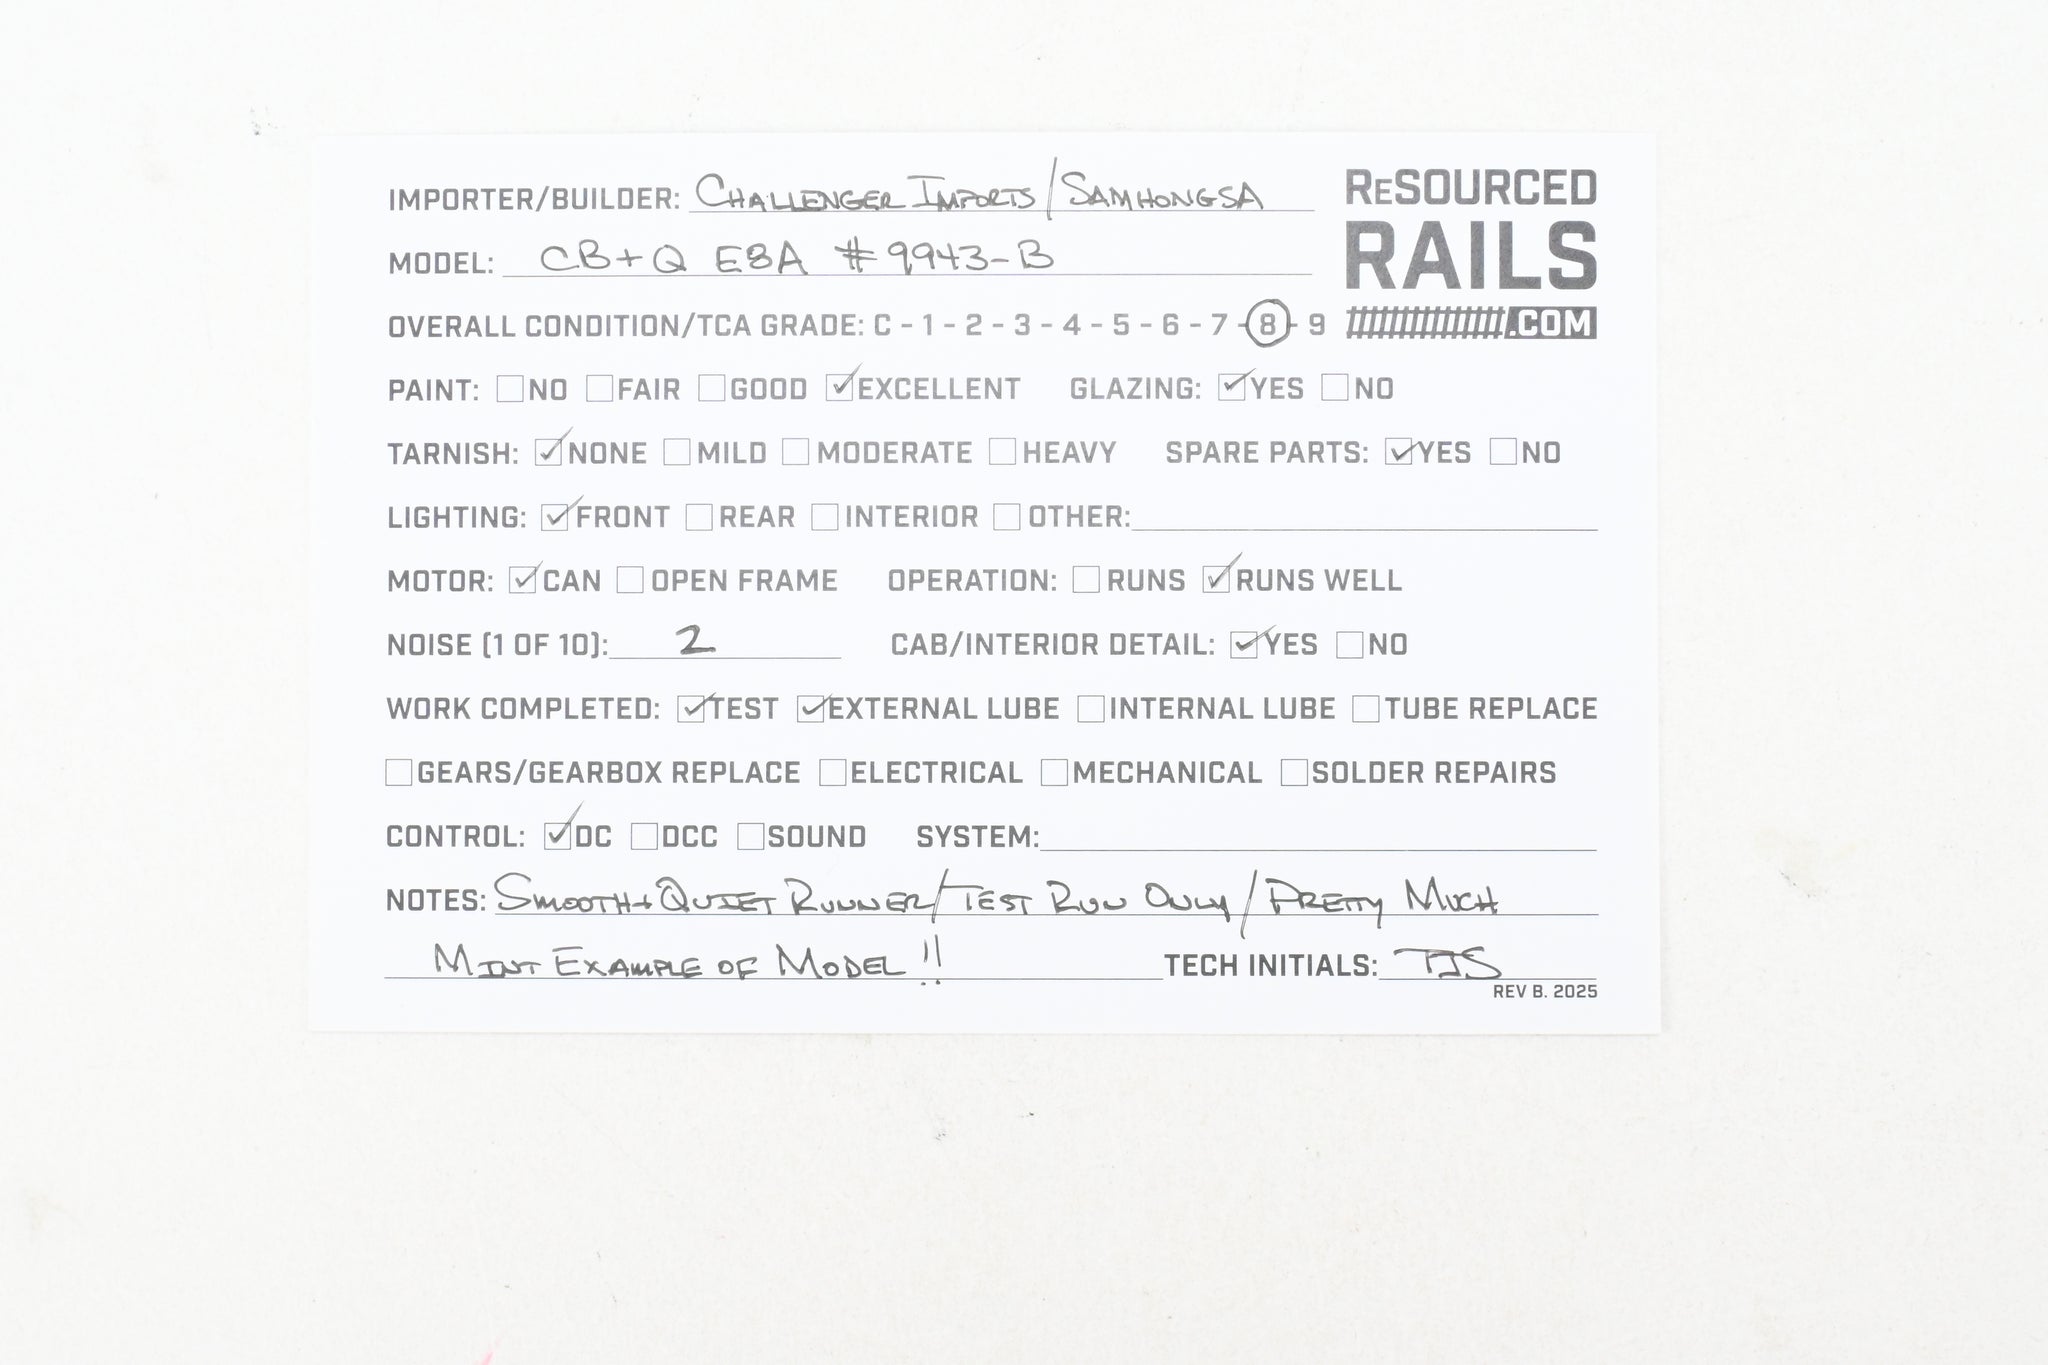 IMPORTER/BUILDER: CHALLENGER IMPORTS/SAMHONGSA
RESOURCED
RAILS
.COM
MODEL: CB+Q E8A #9943-B
OVERALL CONDITION/TCA GRADE: C - 1 - 2 - 3 - 4 - 5 - 6 - 7 - 8 - 9
PAINT: NO FAIR GOOD ✓EXCELLENT GLAZING: ✓YES NO
TARNISH: ✓NONE MILD MODERATE HEAVY SPARE PARTS: ✓YES NO
LIGHTING: ✓FRONT REAR INTERIOR OTHER:
MOTOR: ✓CAN OPEN FRAME OPERATION: RUNS ✓RUNS WELL
NOISE (1 OF 10): 2 CAB/INTERIOR DETAIL: ✓YES NO
WORK COMPLETED: ✓TEST ✓EXTERNAL LUBE INTERNAL LUBE TUBE REPLACE
GEARS/GEARBOX REPLACE ELECTRICAL MECHANICAL SOLDER REPAIRS
CONTROL: ✓DC DCC SOUND SYSTEM:
NOTES: SMOOTH + QUIET RUNNER/TEST RUN ONLY/PRETTY MUCH
MINT EXAMPLE OF MODEL!! TECH INITIALS: TJS
REV B. 2025